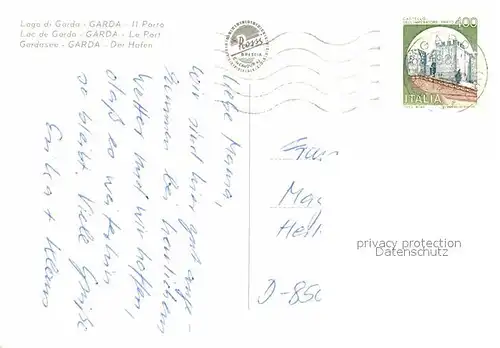 Lago di Garda - GARDA - Il Porto
Lac de Garda - GARDA - Le Port
Gardasee - GARDA - Der Hafen
Rossi
BRESCIA
CASTELLO
400
ITALIA
Liebe Mama,
wir sind hier gut ange-
kommen bei herrlichem
Wetter und wir hoffen,
daß es weiterhin
so bleibt. Viele Grüße
Erika + Klaus
D-850
privacy protection
Datenschutz